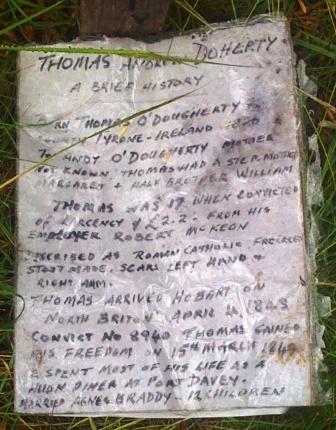 THOMAS ANDREW DOHERTY
A BRIEF HISTORY
BORN THOMAS O'DOUGHERTY
COUNTY TYRONE - IRELAND
TO ANDY O'DOUGHERTY MOTHER
NOT KNOWN. THOMAS HAD A STEP-MOTHER
MARGARET & HALF BROTHER WILLIAM
THOMAS WAS 17 WHEN CONVICTED
OF LARCENCY OF £2.2. FROM HIS
EMPLOYER ROBERT MCKEON
DESCRIBED AS ROMAN CATHOLIC, FRECKLED
STOUT MADE, SCARS LEFT HAND &
RIGHT ARM.
THOMAS ARRIVED HOBART ON
NORTH BRITON APRIL 4, 1843
CONVICT NO 8940 THOMAS GAINED
HIS FREEDOM ON 15TH MARCH
& SPENT MOST OF HIS LIFE AS A
HUON PINER AT PORT DAVEY.
MARRIED AGNES BRADDY - 12 CHILDREN